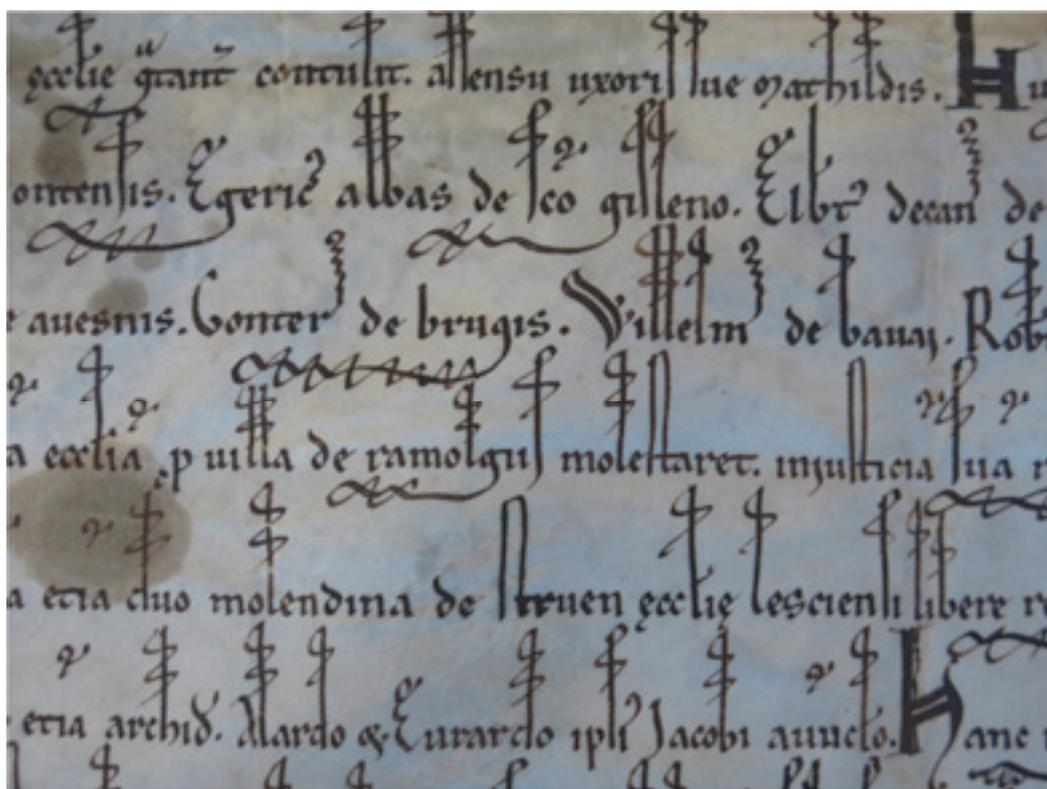 ęcclie contulit. assensu uxoris sue Mathildis. Hu
ontensis. Egeric' abbas de sc̄o gisleno. Elbt' decan' de
e auesnis. Gonter' de brugis. Villelm' de bauai. Rob
a eccl̄ia p uilla de ramolgus molestaret. iniusticia sua r
a etiā duo molendina de struen ęcclię lesciensi libere re
etiā archid'. Alardo & Eurardo ipsi' Jacobi auūclo. Hanc